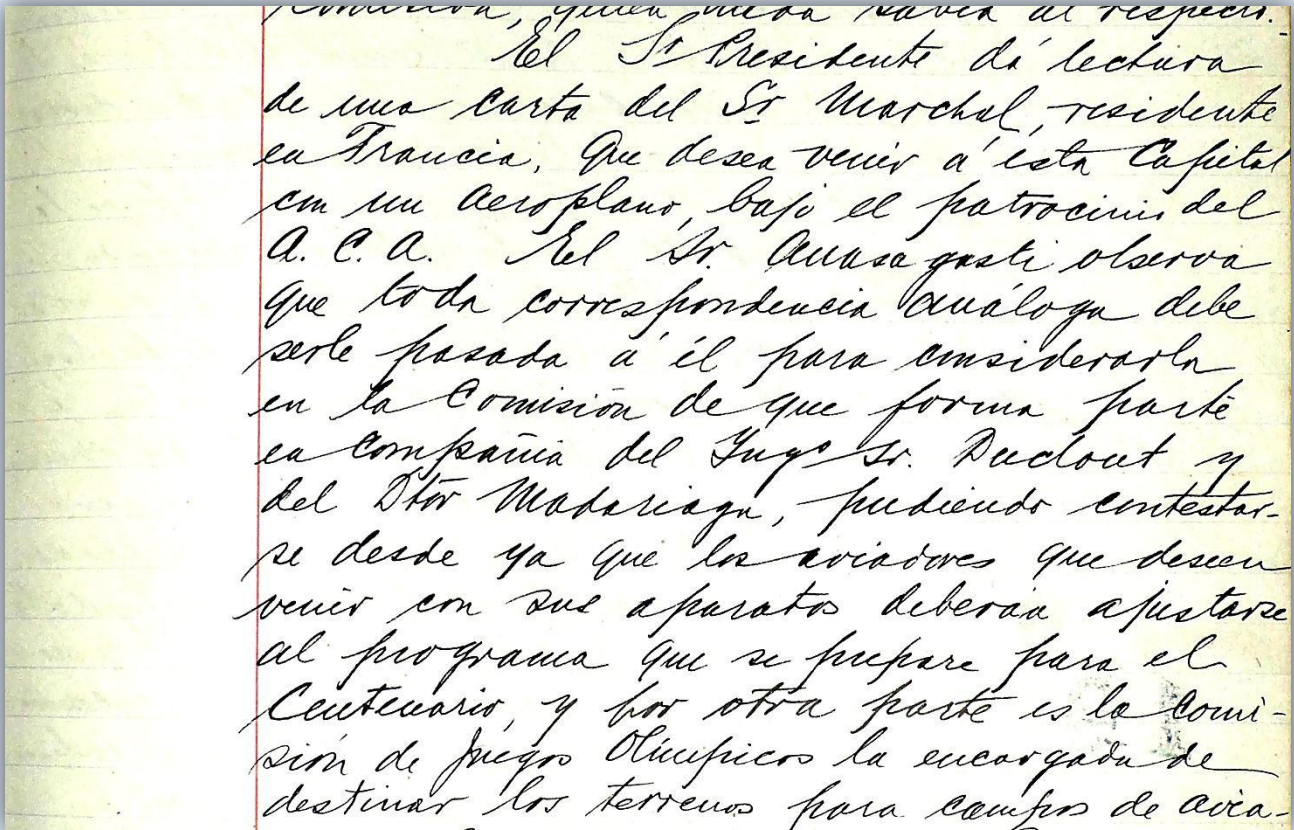 Comisión, quien nada sabía al respecto.
El Sr Presidente dá lectura
de una carta del Sr Marchal, residente
en Francia, que desea venir á esta Capital
con un aeroplano, bajo el patrocinio del
A. C. A. El Sr. Anasagasti observa
que toda correspondencia análoga debe
serle pasada á él para considerarla
en la Comisión de que forma parte
en compañia del Ingº Sr. Duclout y
del Dtor Madariaga, pudiendo contestar-
se desde ya que los aviadores que deseen
venir con sus aparatos deberán ajustarse
al programa que se prepare para el
Centenario, y por otra parte es la Comi-
sión de Juegos Olímpicos la encargada de
destinar los terrenos para campos de avia-